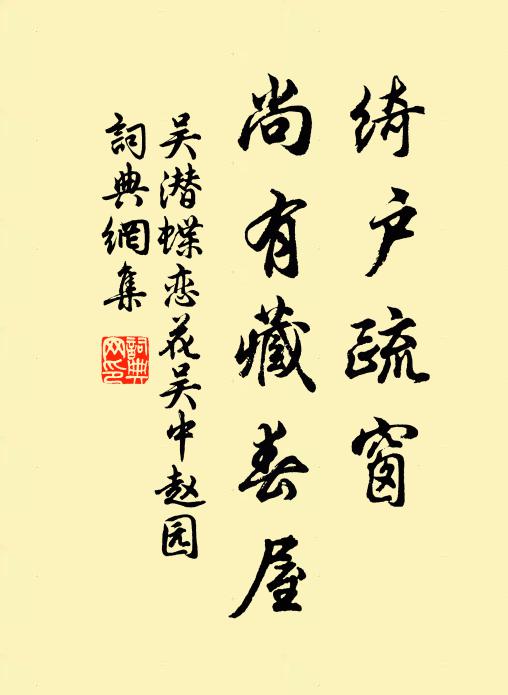 绮户疏窗
尚有藏春屋
吴潜蝶恋花吴中赵园
詞典網集
詞典
网印